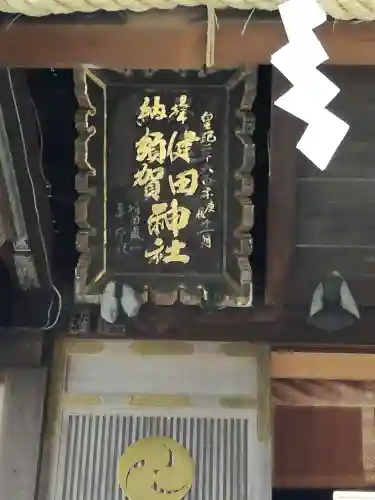 皇紀二千六百年庚辰十一月
奉納
健田
須賀
神社